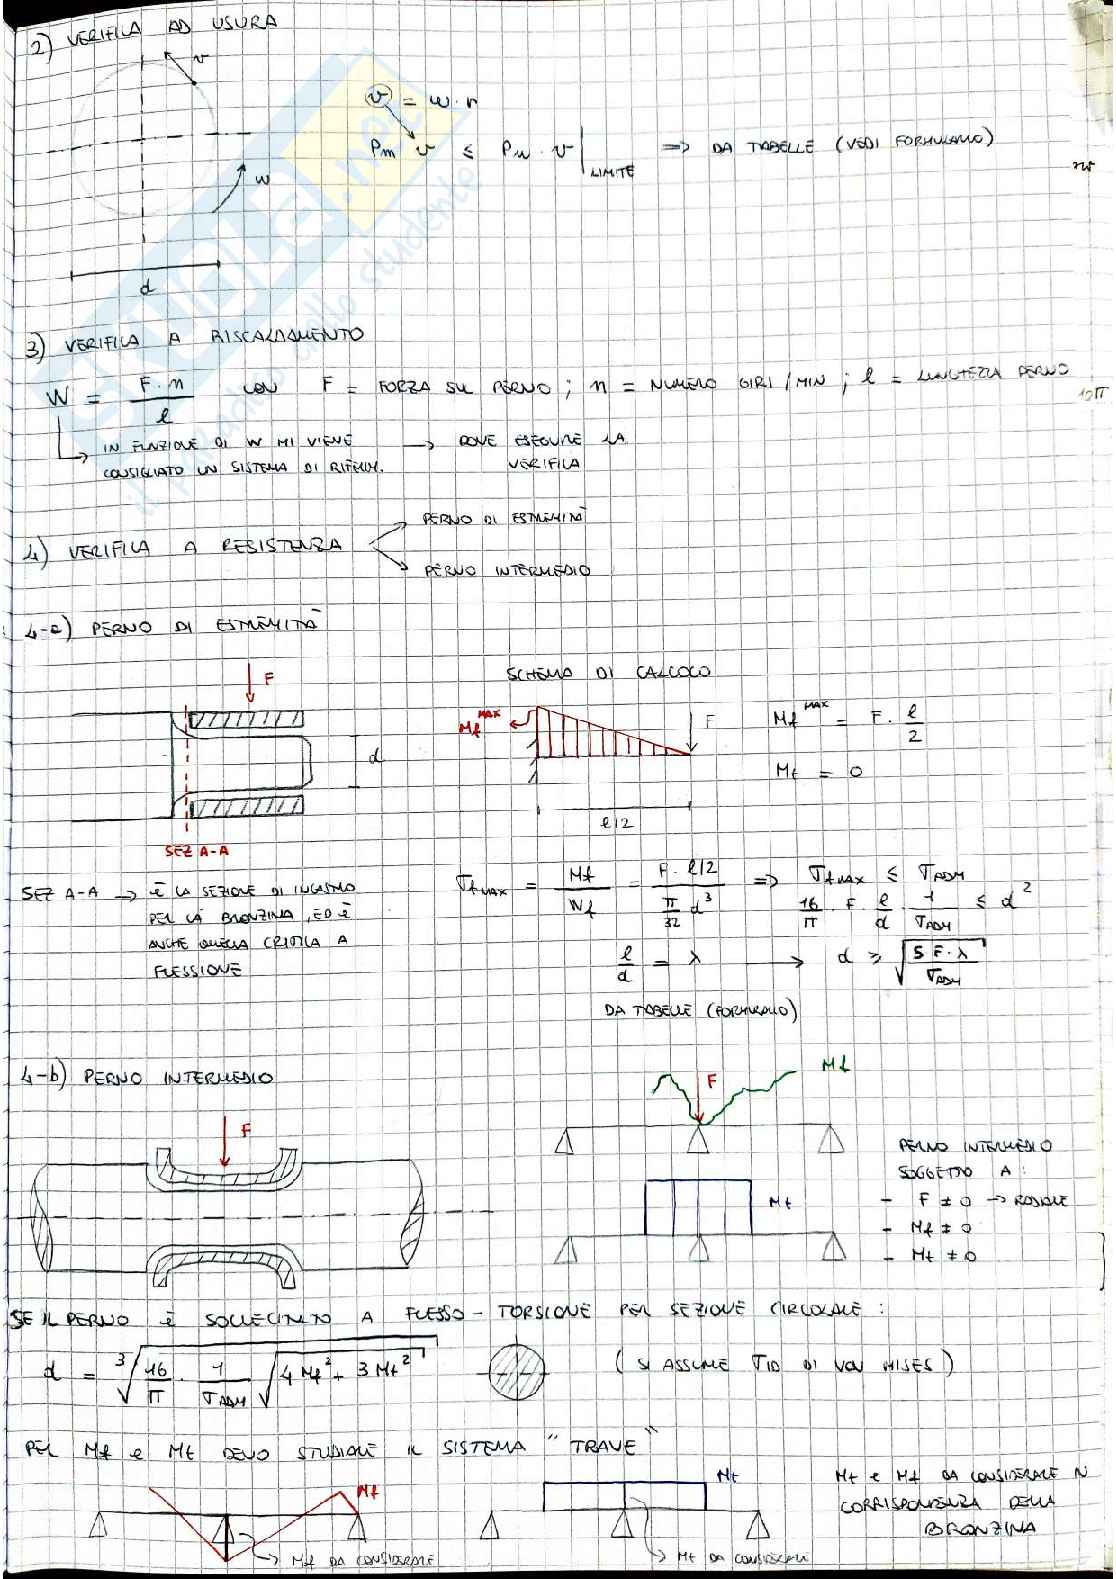 2) VERIFICA AD USURA
v
v = w · r
Pm v ≤ Pm · v | LIMITE => DA TABELLE (VEDI FORMULARIO)
w
d
3) VERIFICA A RISCALDAMENTO
W = F · n / l CON F = FORZA SUL PERNO ; n = NUMERO GIRI / MIN ; l = LUNGHEZZA PERNO
IN FUNZIONE DI W MI VIENE → DOVE ESEGUIRE LA
CONSIGLIATO UN SISTEMA DI RIFERIM. VERIFICA
PERNO DI ESTREMITÀ
4) VERIFICA A RESISTENZA
PERNO INTERMEDIO
4-a) PERNO DI ESTREMITÀ
SCHEMA DI CALCOLO
F
Mf MAX
F
Mf MAX = F · l/2
d
Mt = 0
l/2
SEZ A-A
SEZ A-A → È LA SEZIONE DI INCASTRO
PER LA BRONZINA, ED È
ANCHE QUELLA CRITICA A
FLESSIONE
σf MAX = Mf / Wf = F · l/2 / (π/32 d³) => σf MAX ≤ σADM
16/π · F · l/d · 1/σADM ≤ d²
l/d = λ → d ≥ √(5 F · λ / σADM)
DA TABELLE (FORMULARIO)
4-b) PERNO INTERMEDIO
F
F
Mf
Mt
PERNO INTERMEDIO
SOGGETTO A :
- F ≠ 0 → RADIALE
- Mf ≠ 0
- Mt ≠ 0
SE IL PERNO È SOLLECITATO A FLESSO - TORSIONE PER SEZIONE CIRCOLARE :
d = ³√(16/π · 1/σADM √(4 Mf² + 3 Mt²)) (SI ASSUME σID DI VON MISES)
PER Mf e Mt DEVO STUDIARE IL SISTEMA "TRAVE"
Mf
Mf DA CONSIDERARE
Mt
Mt DA CONSIDERARE
Mt e Mf DA CONSIDERARE IN
CORRISPONDENZA DELLA
BRONZINA